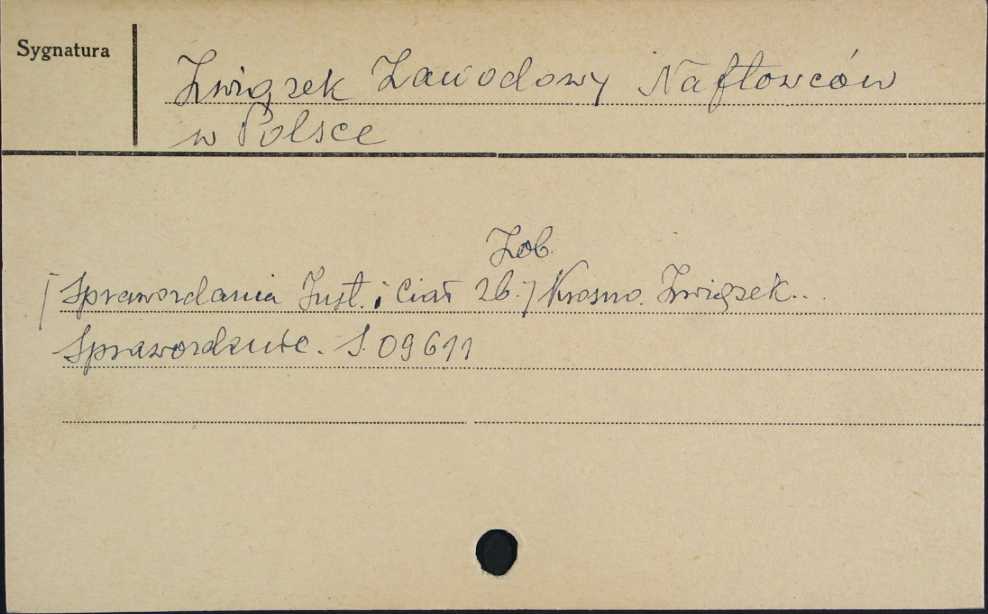 Sygnatura
Związek Zawodowy Naftowców
w Polsce
Zob.
/Sprawozdania Inst. i Ciał Zb./ Krosno. Związek...
Sprawozdanie. S. 09611